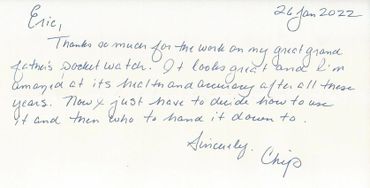 Eric,
26 Jan 2022
Thanks so much for the work on my great grand
father's pocket watch. It looks great and I'm
amazed at its health and accuracy after all these
years. Now I just have to decide how to use
it and then who to hand it down to.
Sincerely,
Chip